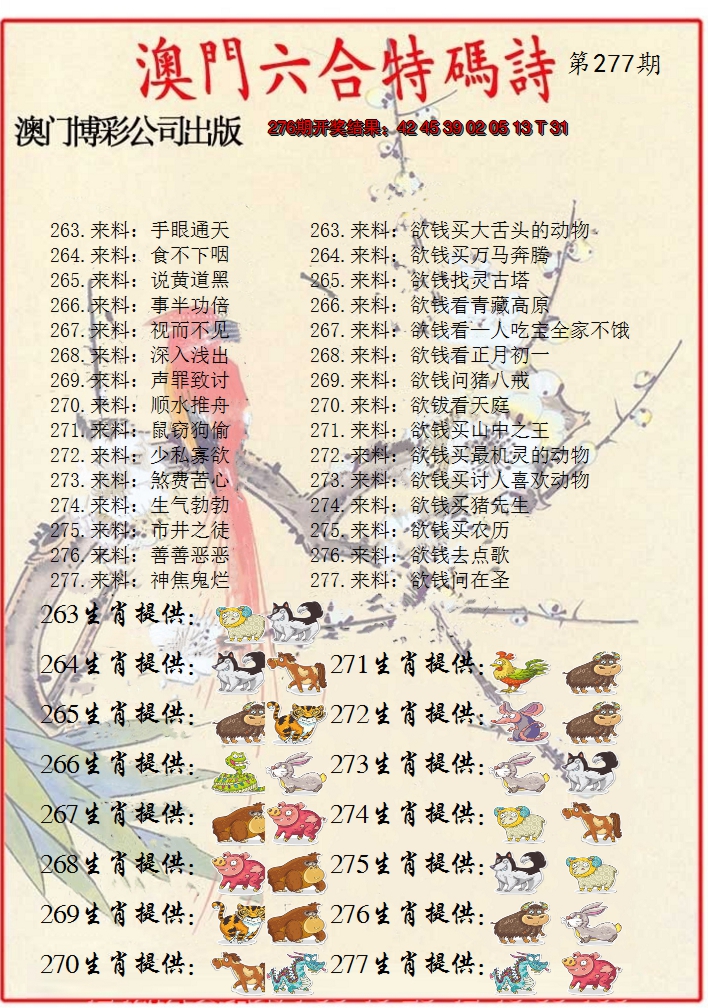 澳門六合特碼詩 第277期
澳门博彩公司出版 276期开奖结果：42 45 39 02 05 13 T 31
263.来料：手眼通天 263.来料：欲钱买大舌头的动物
264.来料：食不下咽 264.来料：欲钱买万马奔腾
265.来料：说黄道黑 265.来料：欲钱找灵古塔
266.来料：事半功倍 266.来料：欲钱看青藏高原
267.来料：视而不见 267.来料：欲钱看一人吃宝全家不饿
268.来料：深入浅出 268.来料：欲钱看正月初一
269.来料：声罪致讨 269.来料：欲钱问猪八戒
270.来料：顺水推舟 270.来料：欲钹看天庭
271.来料：鼠窃狗偷 271.来料：欲钱买山中之王
272.来料：少私寡欲 272.来料：欲钱买最机灵的动物
273.来料：煞费苦心 273.来料：欲钱买讨人喜欢动物
274.来料：生气勃勃 274.来料：欲钱买猪先生
275.来料：市井之徒 275.来料：欲钱买农历
276.来料：善善恶恶 276.来料：欲钱去点歌
277.来料：神焦鬼烂 277.来料：欲钱问在圣
263生肖提供：
264生肖提供： 271生肖提供：
265生肖提供： 272生肖提供：
266生肖提供： 273生肖提供：
267生肖提供： 274生肖提供：
268生肖提供： 275生肖提供：
269生肖提供： 276生肖提供：
270生肖提供： 277生肖提供：